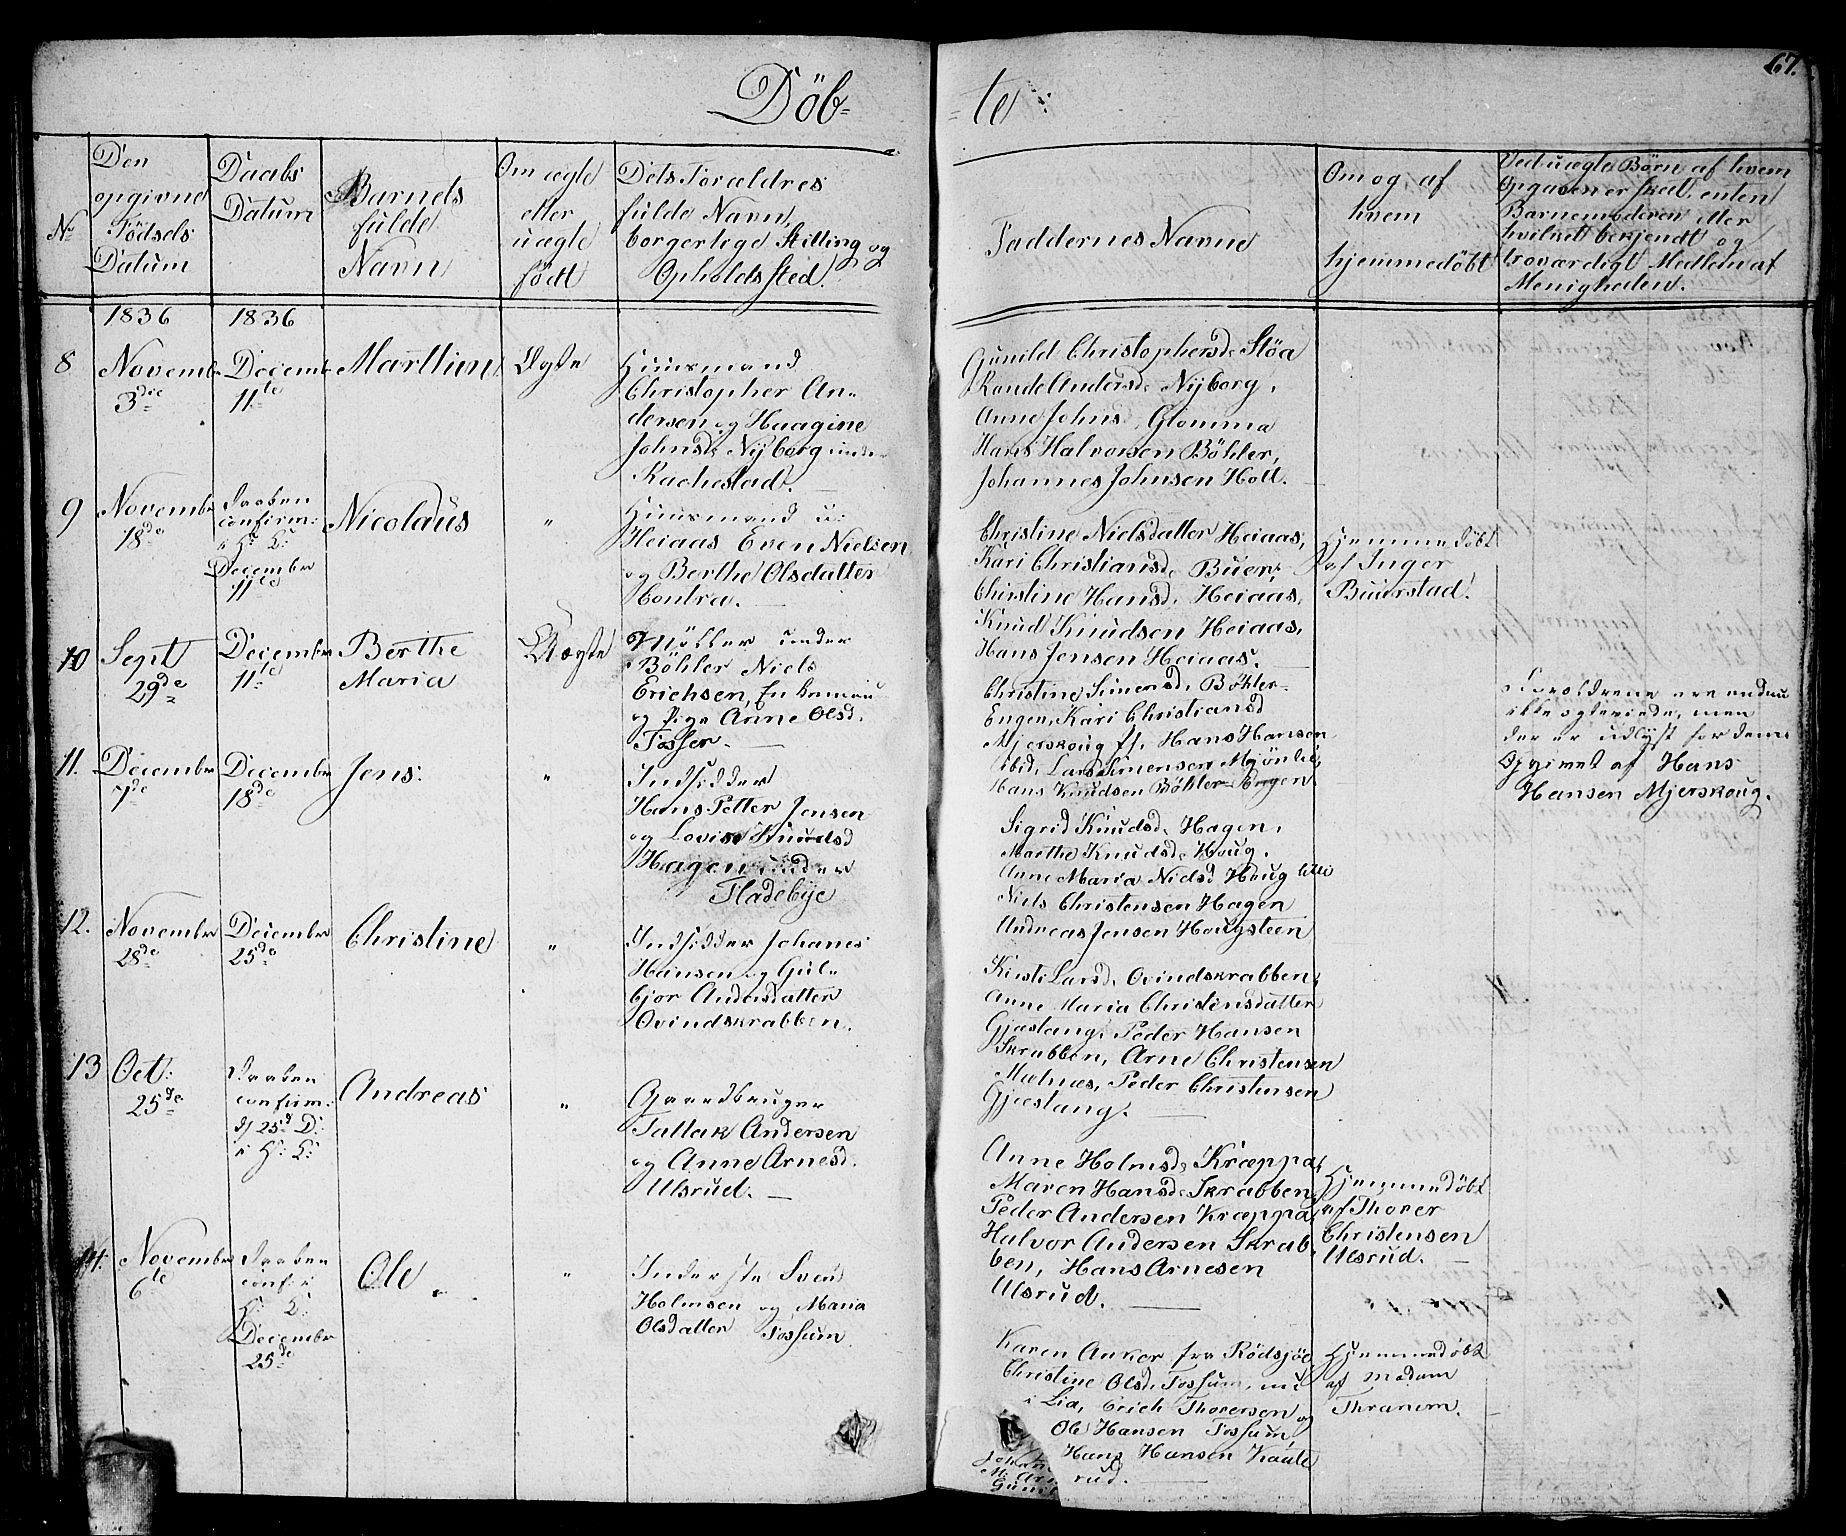 Döb-
-te
67.
No
Den
opgivne
Födsels
Datum
Daabs
Datum
Barnets
fulde
Navn
Om ægte
eller
uægte
födt
Dets Forældres
fulde Navn,
borgerlige Stilling og
Opholdssted.
Faddernes Navne
Om og af
hvem
hjemmedöbt
Ved uægte Börn af hvem
Opgaven er skeet, enten
Barnemoderen eller
hvilket bekjendt og
troværdigt Medlem af
Menigheden.
1836
1836
8
Novembr
3die
Decembr
11te
Marthin
Ægte
Huusmand
Christopher An-
dersen og Haagine
Johnsd. Nyborg under
Rachestad.
Gunild Christophersd. Stöa
Rande Andersd. Nyborg,
Anne Johnsd. Glomma
Hans Halvorsen Böhler,
Johannes Johnsen Holt.
9
Novembr
18de
Daaben
confirm:
i H: K:
Decembr
11te
Nicolaüs
"
Huusmand u:
Heiaas Even Nielsen
og Berthe Olsdatter
Contra.
Christine Nielsdatter Heiaas,
Kari Christiansd. Buer,
Christine Hansd. Heiaas,
Knud Knudsen Heiaas,
Hans Jensen Heiaas.
Hjemmedöbt
af Inger
Buerstad.
10
Sept
29de
Decembr
11te
Berthe
Maria
Uægte
Möller under
Böhler Niels
Erichsen, Enkemand
og Pige Anne Olsd.
Tosser.
Christine Simensd. Böhler-
Engen, Kari Christiansd
Mjerskoug ff. Hans Hansen
ibid, Lars Simensen Mjönlie,
Hans Knudsen Böhler-Engen.
Forældrene ere endnu
ikke egteviede, men
der er udlyst for dem.
Opgivet af Hans
Hansen Mjerskoug.
11.
Decembr
7de
Decembr
18de
Jens.
"
Indsidder
Hans Petter Jensen
og Lovise Knudsd
Hagen under
Fladebye
Sigrid Knudsd. Hagen,
Marthe Knudsd. Houg.
Anne Maria Nielsd Houg lille
Niels Christensen Hagen
Andreas Jensen Hougsteen
12.
Novembr
28de
Decembr
25de
Christine
"
Indsidder Johanes
Hansen og Gul-
bjor Andersdatter
Ovindskrabben.
Kirsti Larsd. Ovindskrabben,
Anne Maria Christensdatter
Gjæstang, Peder Hansen
Skrabben, Arne Christensen
Melnæs, Peder Christensen
Gjæstang.
13
Oct:
25de
Daaben
confirm:
d. 25d D:
i H: K:
Andreas
"
Gaardbruger
Tallak Andersen
og Anne Arnesd.
Ulsrud.
Anne Holmsd. Kræppa,
Maren Hansd. Skrabben,
Peder Andersen Kræppa,
Halvor Andersen Skrab-
ben, Hans Arnesen
Ulsrud.
Hjemmedöbt
af Thorer
Christensen
Ulsrud.
14.
Novembr
6te
Daaben
conf: i
H: K:
Decembr
25de
Ole
"
Inderste Sven
Holmsen og Maria
Olsdatter Tossum.
Karen Anker fra Rödsjöe
Christine Olsd. Tossum,
i Lia, Erich Thorersen og
Ole Hansen Tossum,
Hans Hansen Kaate
rud.
Hjemmedöbt
af Madam
Thranem.